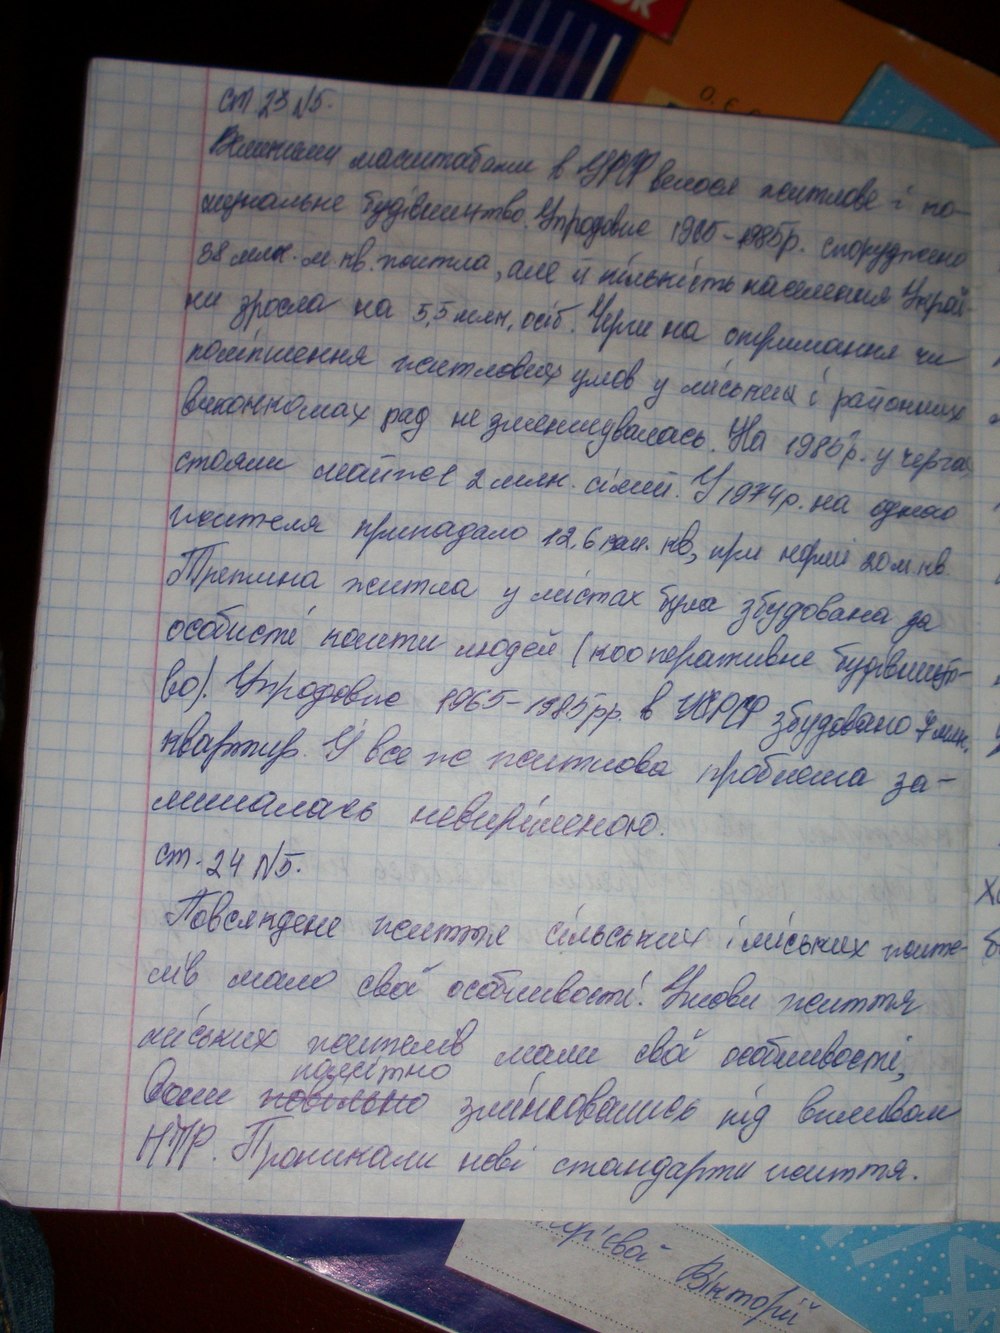 ст. 23 №5.
Великими масштабами в УРСР велося житлове і ко-
мунальне будівництво. Упродовж 1965-1985р. споруджено
38 млн. м кв. житла, але й кількість населення Украї-
ни зросла на 5,5 млн. осіб. Черги на отримання чи
поліпшення житлових умов у міських і районних
виконкомах рад не зменшувалась. На 1985р. у чергах
стояли майже 2 млн. сімей. У 1974р. на одного
жителя припадало 12,6 кв, при нормі 20 м. кв
Третина житла у містах була збудована за
особисті кошти людей (кооперативне будівницт-
во). Упродовж 1965-1985рр. в УРСР збудовано 7 млн.
квартир. І все ж житлова проблема за-
лишалась невирішеною.
ст. 24 №5.
Повсякдене життя сільських і міських жите-
лів мало свої особливості. Умови життя
міських жителів мали свої особливості,
помітно
Вони повільно змінювались під впливом
НТР. Проникали нові стандарти життя.
Вікторії